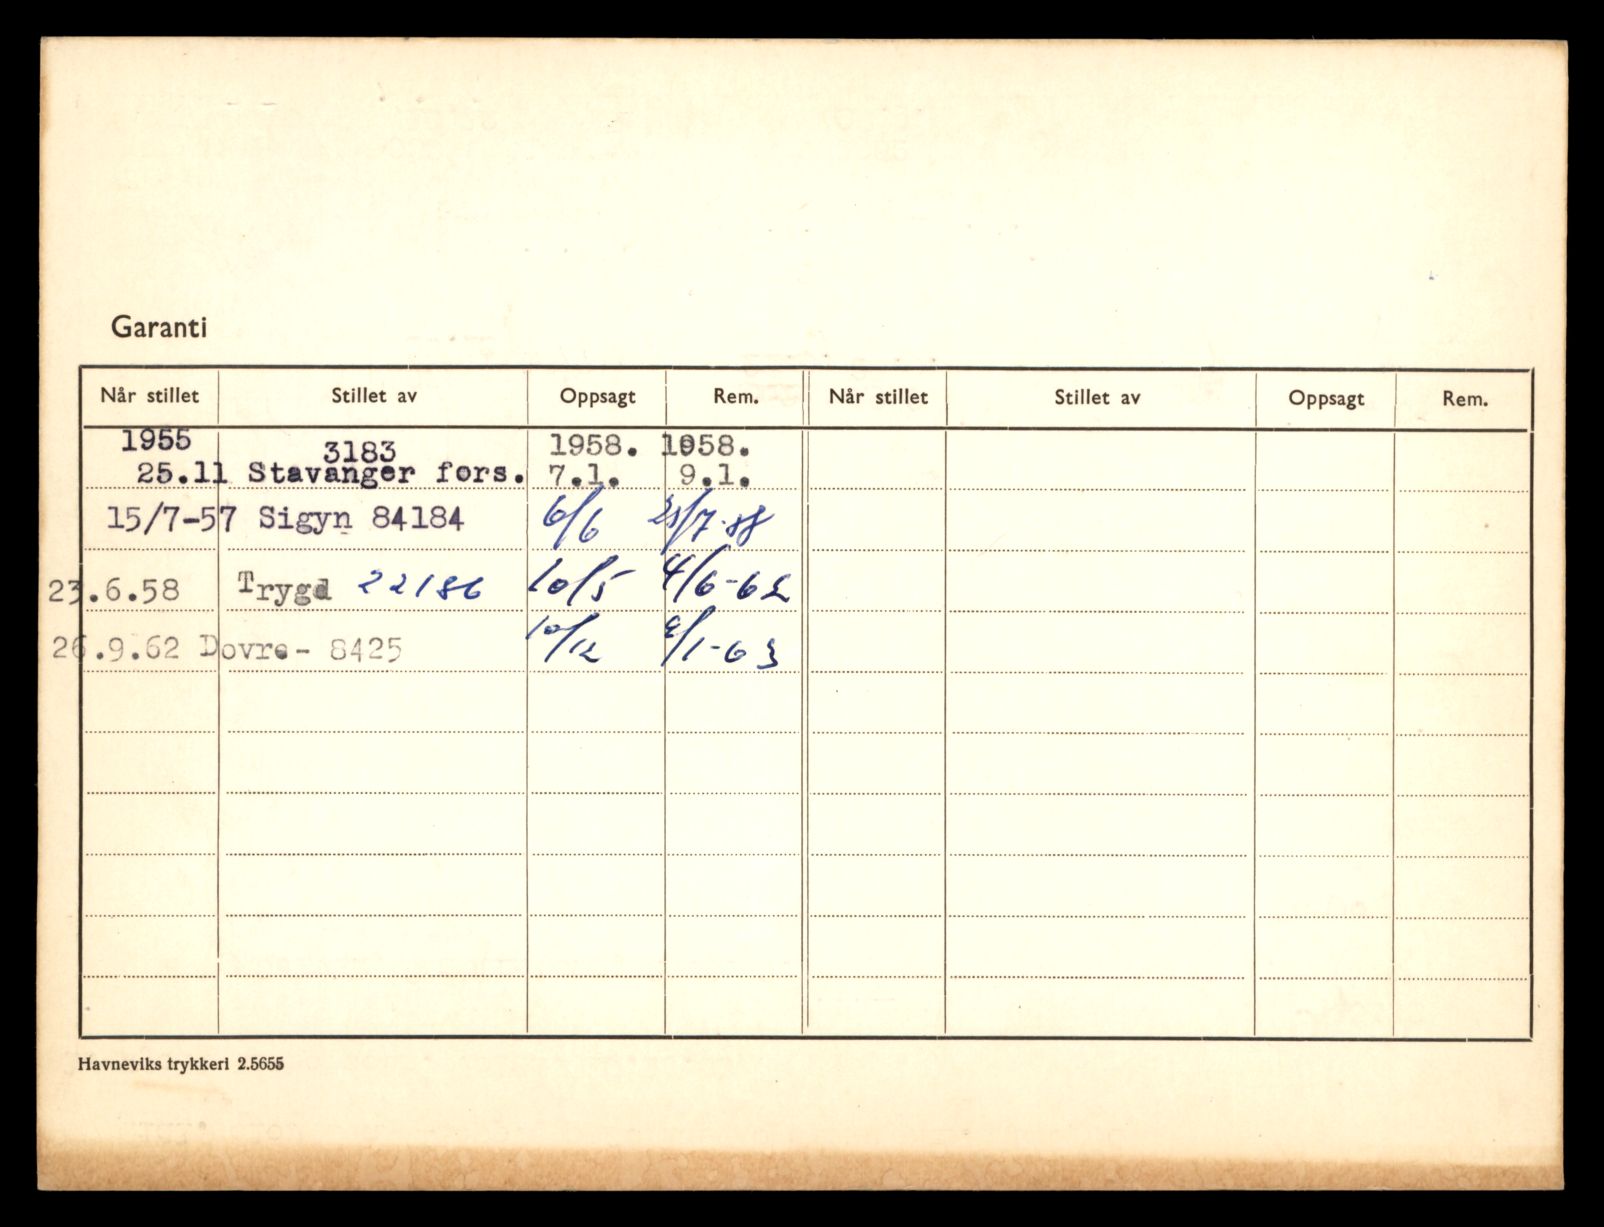 Garanti
Når stillet Stillet av Oppsagt Rem. Når stillet Stillet av Oppsagt Rem.
1955 3183 1958. 1958.
25.11 Stavanger fors. 7.1. 9.1.
15/7-57 Sigyn 84184 6/6
23.6.58 Trygd 22186 10/5 4/6-62
26.9.62 Dovre- 8425 10/12 9/1-63
Havneviks trykkeri 2.5655